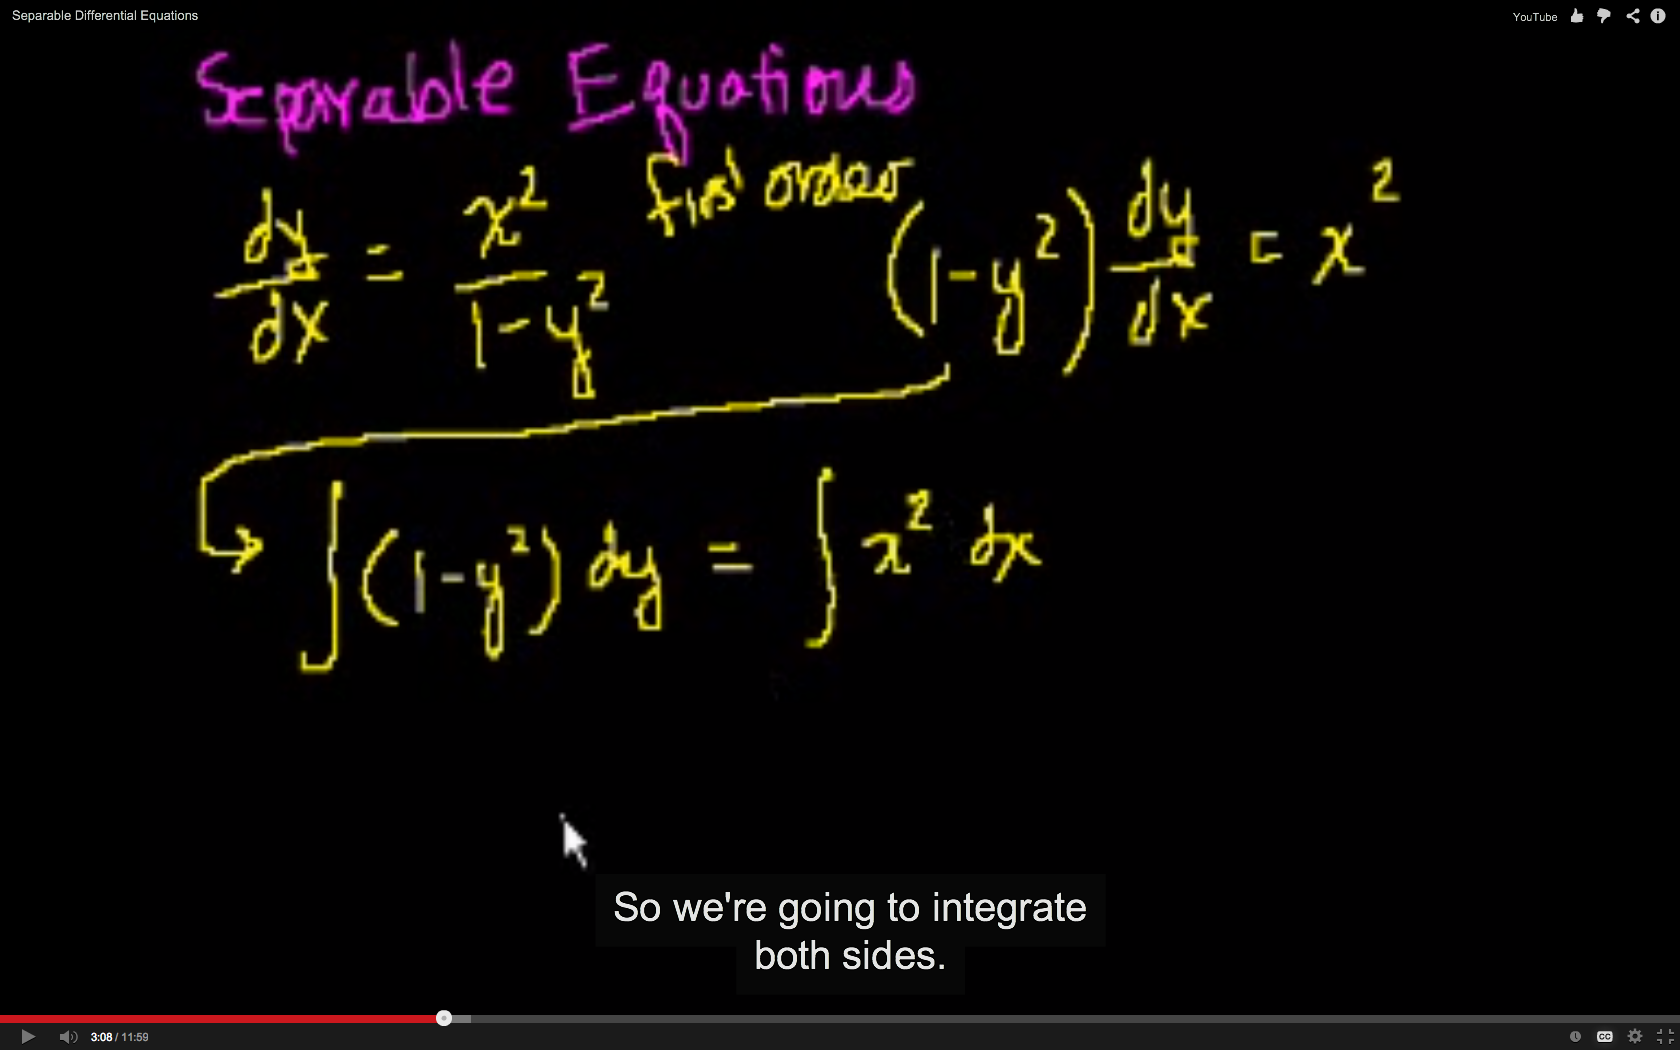 Separable Differential Equations
YouTube
Separable Equations
first order
dy/dx = x²/(1-y²)
(1-y²) dy/dx = x²
∫(1-y²) dy = ∫ x² dx
So we're going to integrate
both sides.
3:08 / 11:59
CC